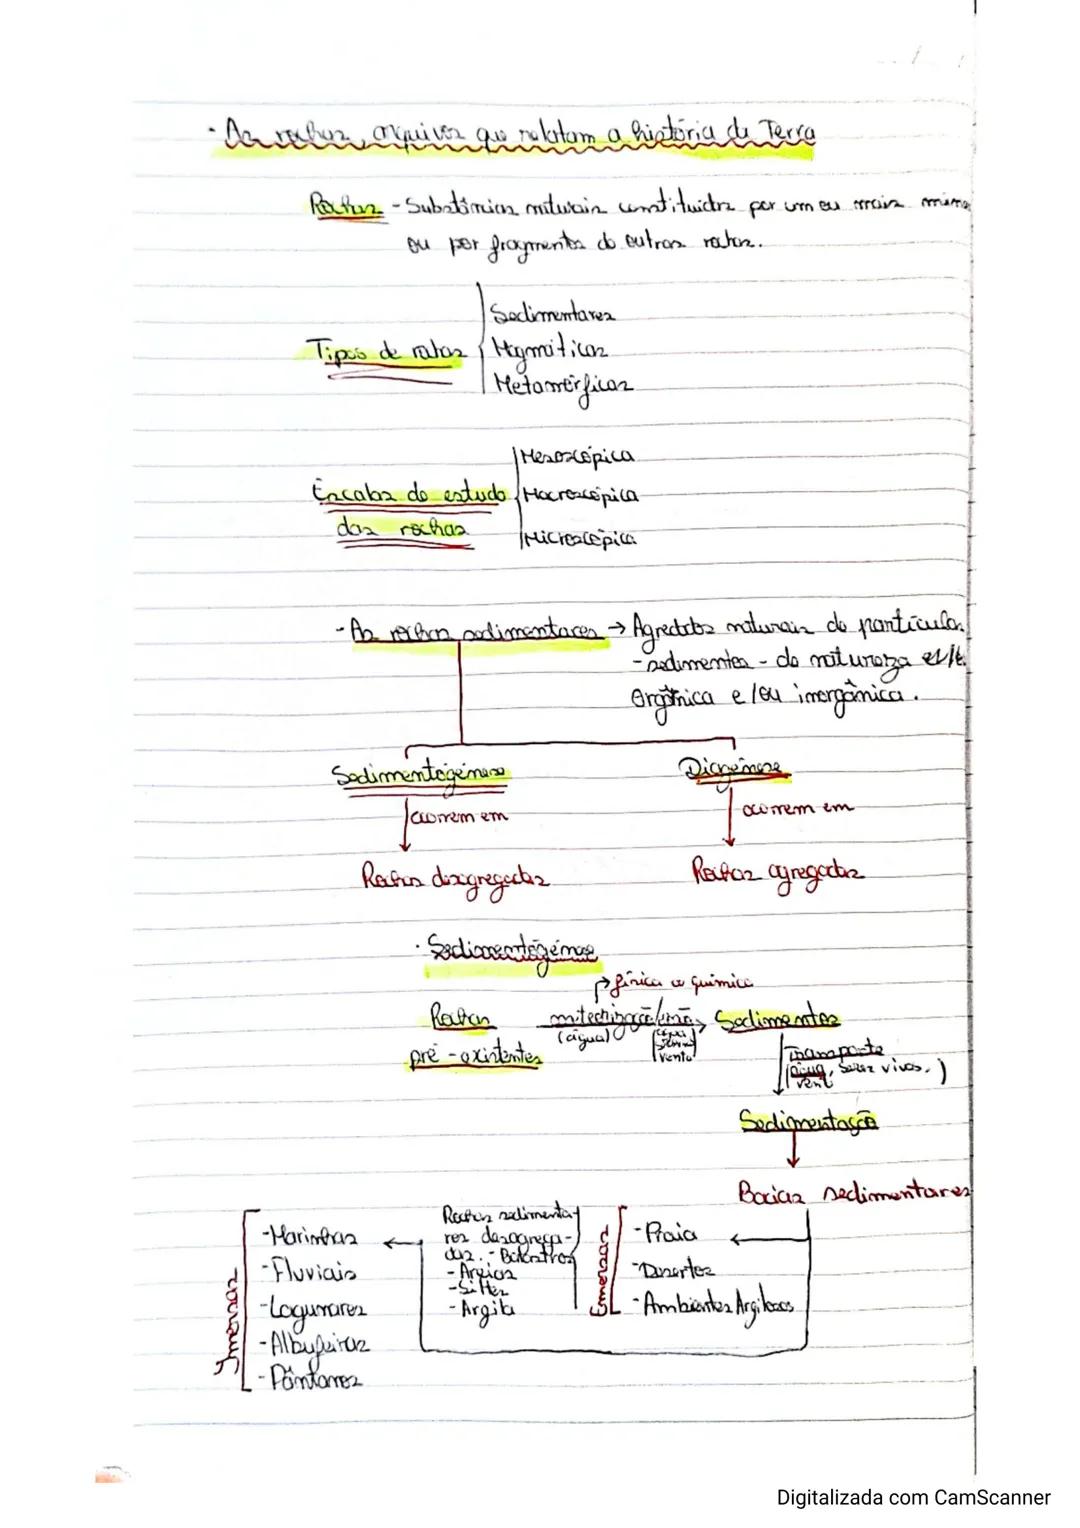 - As rochas, arquivos que relatam a história da Terra
Rochas - Substâncias naturais constituídas por um ou mais
ou por fragmentos de outras rochas.
Tipos de rochas
Sedimentares
Magmáticas
Metamórficas
Escalas de estudo
das rochas
Mesoscópica
Macroscópica
Microscópica
- As rochas sedimentares → Agregados naturais de partículas
- sedimentos - de natureza
orgânica e/ou inorgânica.
Sedimentogénese
Diagénese
ocorrem em
ocorrem em
Rochas desagregadas
Rochas agregadas
· Sedimentogénese
física e química
Rochas
pré-existentes
meteorização/erosão
(água)
vento
Sedimentos
Transporte
água, seres vivos.)
vent
Sedimentação
Bacias sedimentares
Imersas
- Marinhas
- Fluviais
- Lagunares
- Albufeiras
- Pântanos
Rochas sedimenta-
res desagrega-
das. - Balastros
- Areias
- Siltes
- Argila
Emersas
- Praia
- Desertos
- Ambientes Argilosos
Digitalizada com CamScanner